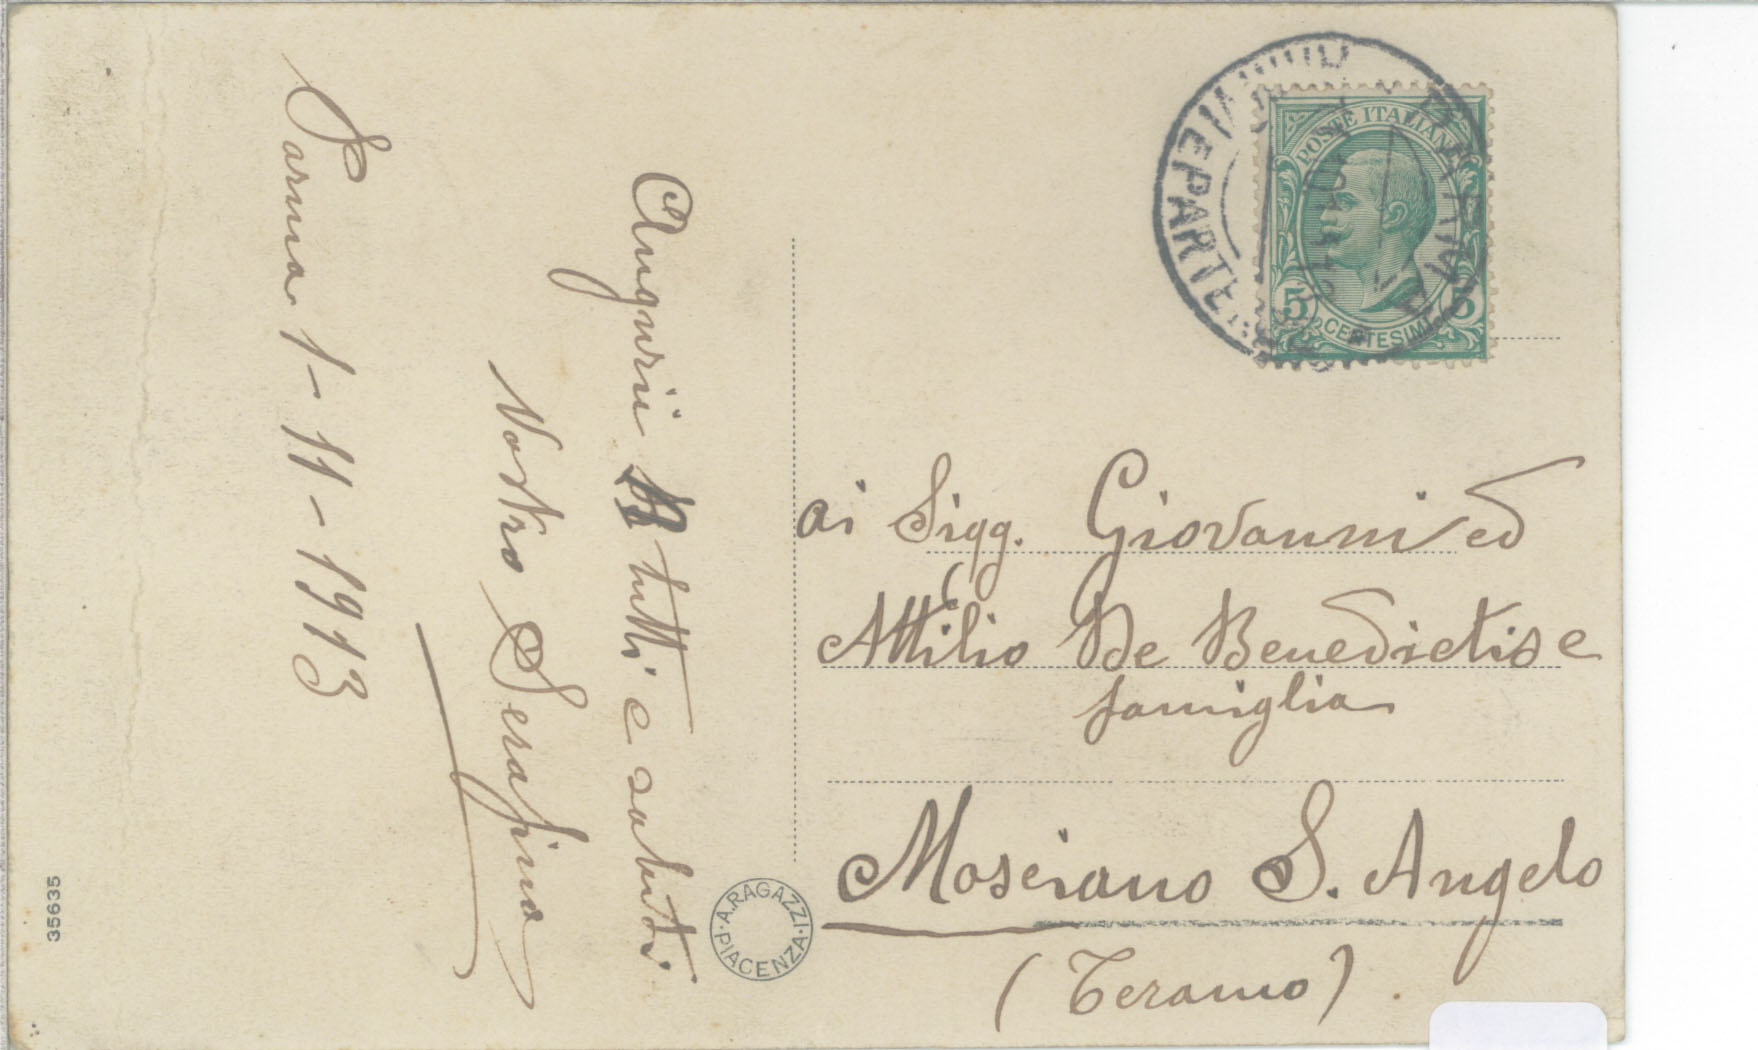 Parma 1-11-1913
Auguri a tutti e saluti
Vostro Serafino
POSTE ITALIANE
5 5
CENTESIMI
PARMA
ai Sigg. Giovanni ed
Attilio De Benedictis e
famiglia
Mosciano S. Angelo
(Teramo)
A. RAGAZZI · PIACENZA
35635